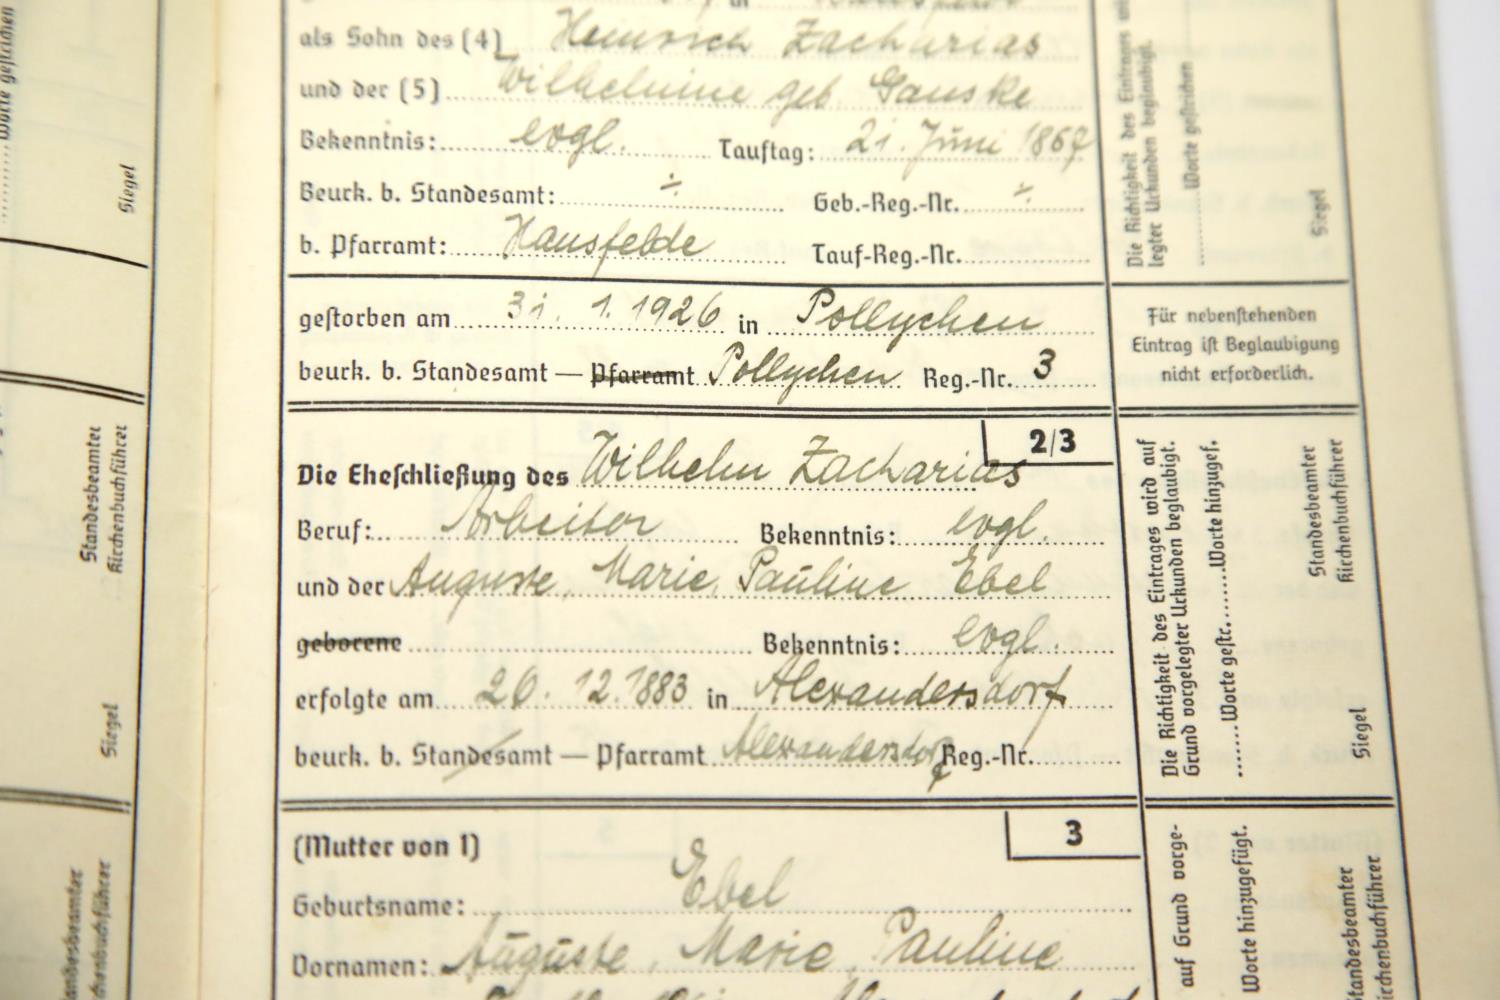 als Sohn des (4) Heinrich Zacharias
und der (5) Wilhelmine geb. Ganske
Bekenntnis: evgl. Tauftag: 21. Juni 1867
Beurk. b. Standesamt: ÷ Geb.-Reg.-Nr. ÷
b. Pfarramt: Hansfelde Tauf-Reg.-Nr.
gestorben am 31. 1. 1926 in Pollychen
beurk. b. Standesamt — Pfarramt Pollychen Reg.-Nr. 3
2/3
Die Eheschließung des Wilhelm Zacharias
Beruf: Arbeiter Bekenntnis: evgl.
und der Auguste, Marie, Pauline Ebel
geborene Bekenntnis: evgl.
erfolgte am 26. 12. 1883 in Alexandersdorf
beurk. b. Standesamt — Pfarramt Alexandersdorf Reg.-Nr.
3
(Mutter von 1)
Geburtsname: Ebel
Vornamen: Auguste, Marie, Pauline
Die Richtigkeit des Eintrages wird
legter Urkunden beglaubigt.
Worte gestrichen
Siegel
Für nebenstehenden
Eintrag ist Beglaubigung
nicht erforderlich.
Die Richtigkeit des Eintrages wird auf
Grund vorgelegter Urkunden beglaubigt.
Worte gestr. Worte hinzugef.
Standesbeamter
Kirchenbuchführer
Siegel
auf Grund vorge-
Worte hinzugefügt.
Standesbeamter
Kirchenbuchführer
Worte gestrichen
Siegel
Standesbeamter
Kirchenbuchführer
Siegel